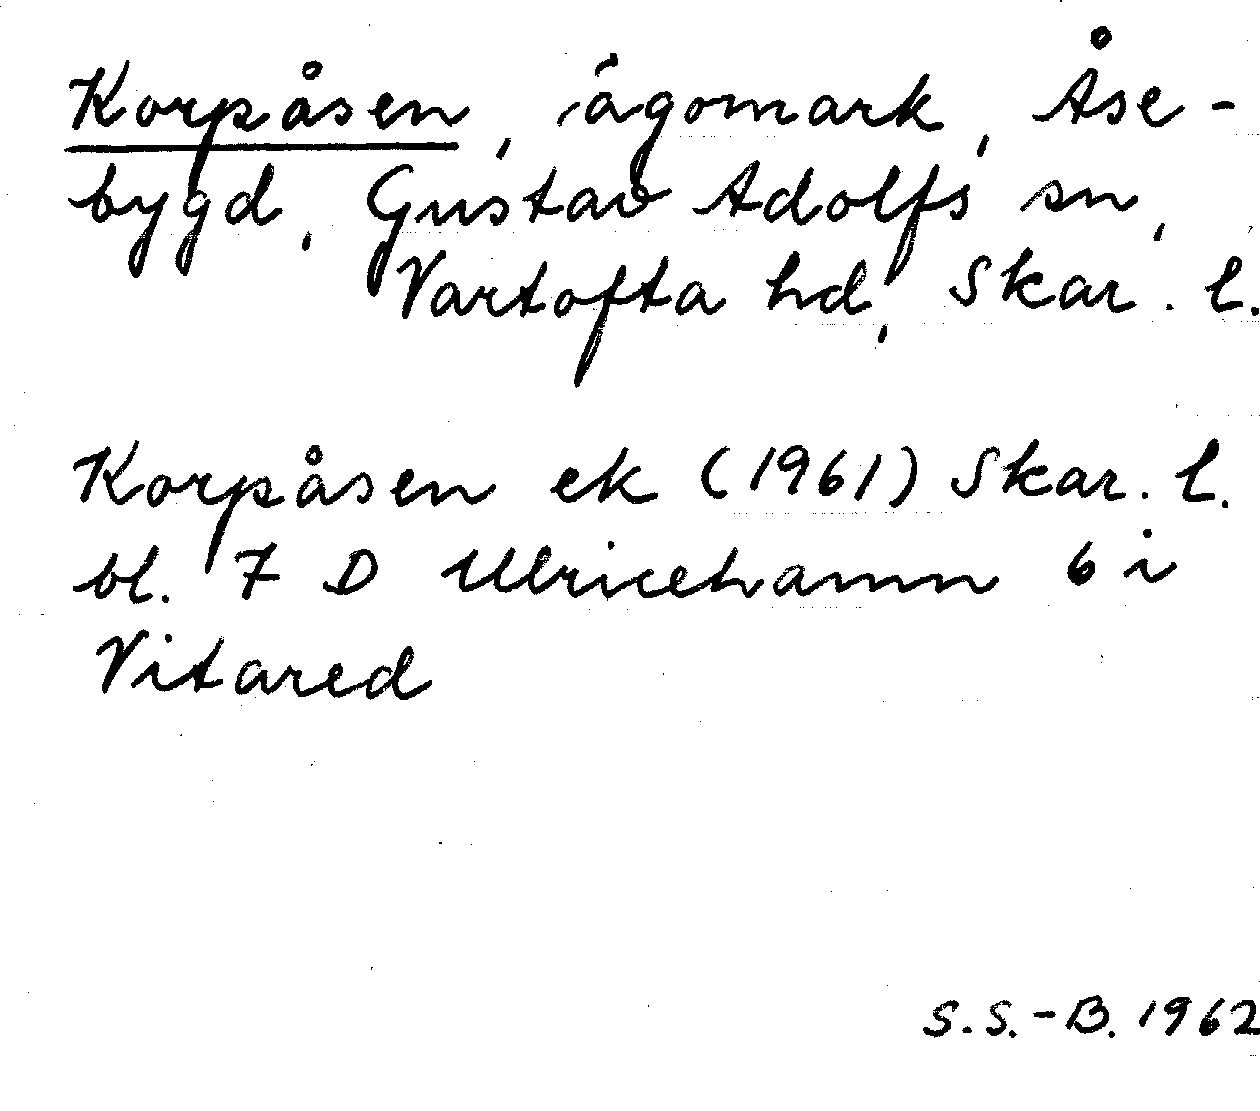 Korpåsen, ägomark, Åse-
bygd, Gustav Adolfs sn,
Vartofta hd, Skar. l.
Korpåsen ek (1961) Skar. l.
bl. 7 D Ulricehamn 6 i
Vitared
S.S.-B. 1962